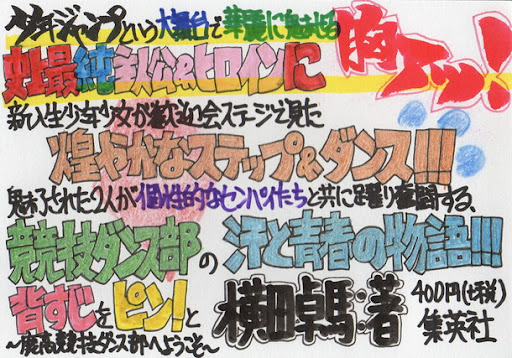 少年ジャンプという大舞台で華麗に魅せる
史上最純主人公&ヒロインに
胸アツ!
新入生少年少女が歓迎会ステージで見た
煌やかなステップ&ダンス!!!
魅了された2人が個性的なセンパイたちと共に踊り奮闘する、
競技ダンス部の汗と青春の物語!!!
背すじをピン!と
〜鹿高競技ダンス部へようこそ〜
横田卓馬:著
400円(+税)
集英社